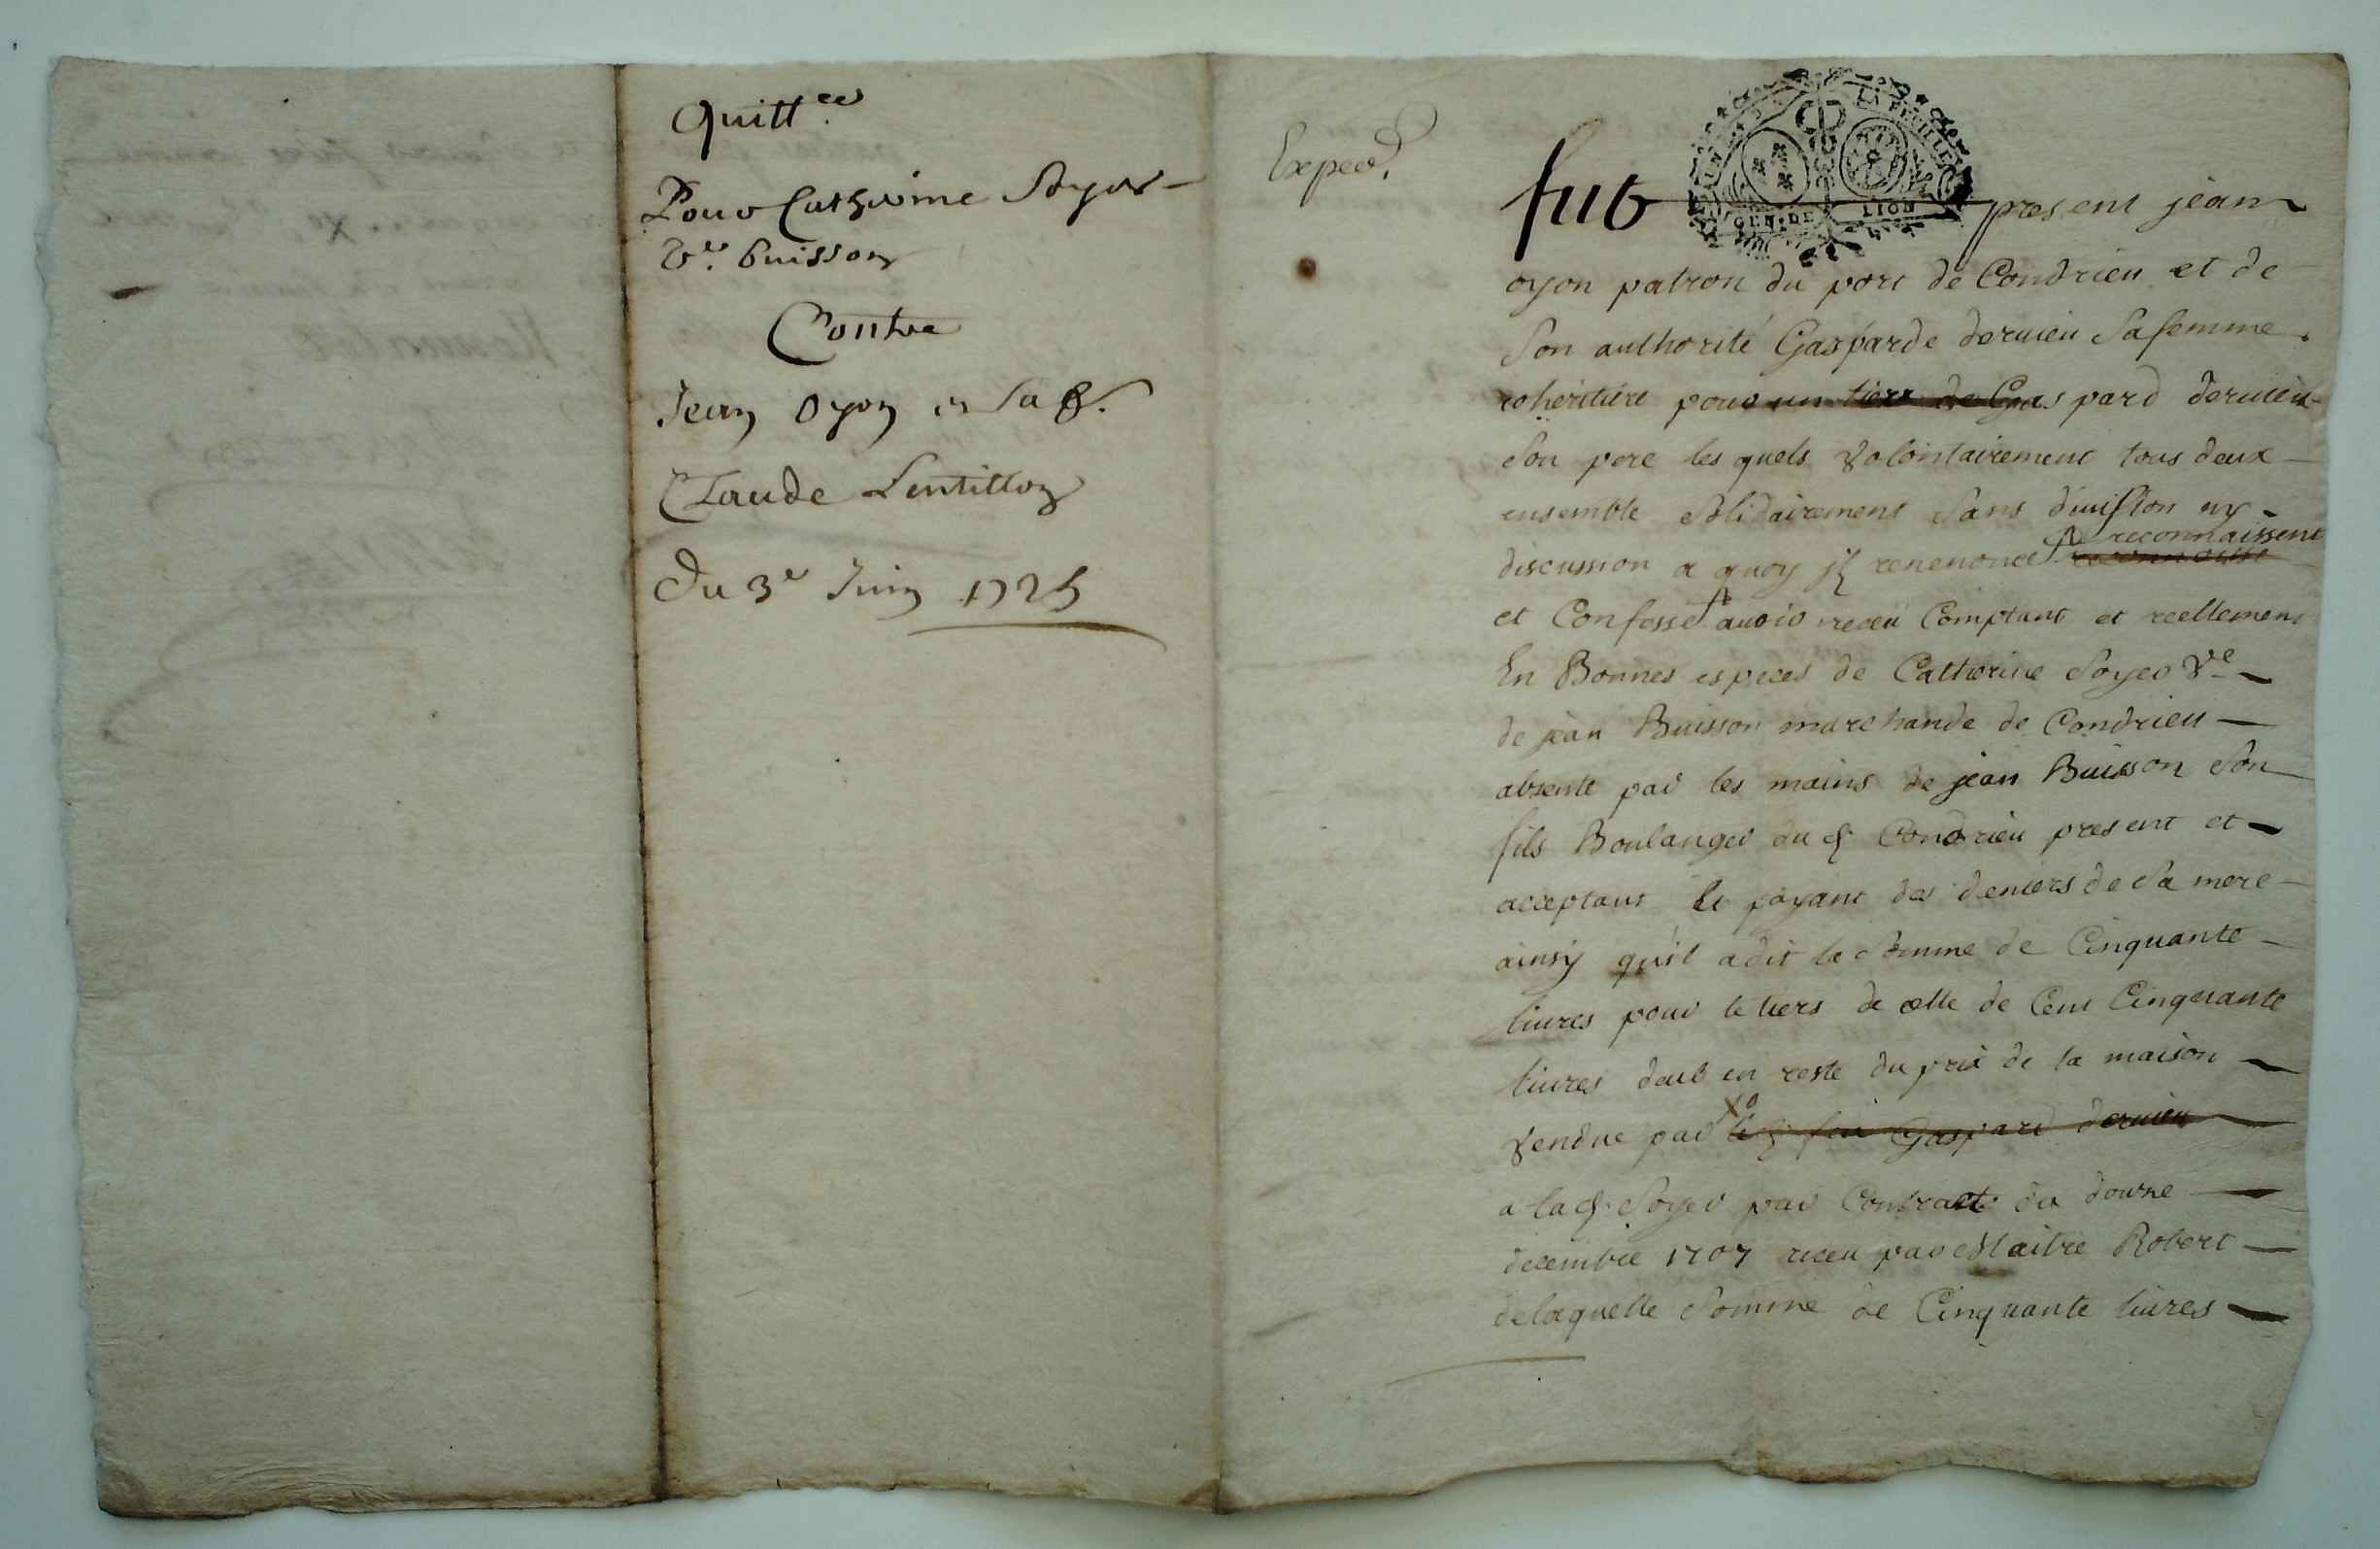 Quitt.ce
Pour Catherine Soyer
Ve. buisson
Contre
Jean Oyon et sa f.
Claude Lentillon
Du 3e Juin 1725
Exped.
GEN. DE LION
fut present jean
oyon patron du port de Condrieu et de
Son authorité Gasparde deruieu Sa femme
coheritiere pour un tiers de Gaspard deruieu
Son pere les quels volontairement tous deux
ensemble solidairement sans diuision ny
discussion a quoy jls renenonce reconnaissent
et Confesse auoir receu Comptant et reellement
En Bonnes especes de Catherine Soyer Ve
de jean Buisson marchande de Condrieu
absente par les mains de jean Buisson Son
fils Boulanger du d. Condrieu present et
acceptant Et payant des deniers de Sa mere
ainsy qu'il a dit la Somme de Cinquante
liures pour le tiers de celle de Cent Cinquante
liures deub en reste du prix de la maison
vendue par le d. feu Gaspard deruieu
a la d. Soyer par Contract du douze
decembre 1707 receu par Maitre Robert
de laquelle Somme de Cinquante liures